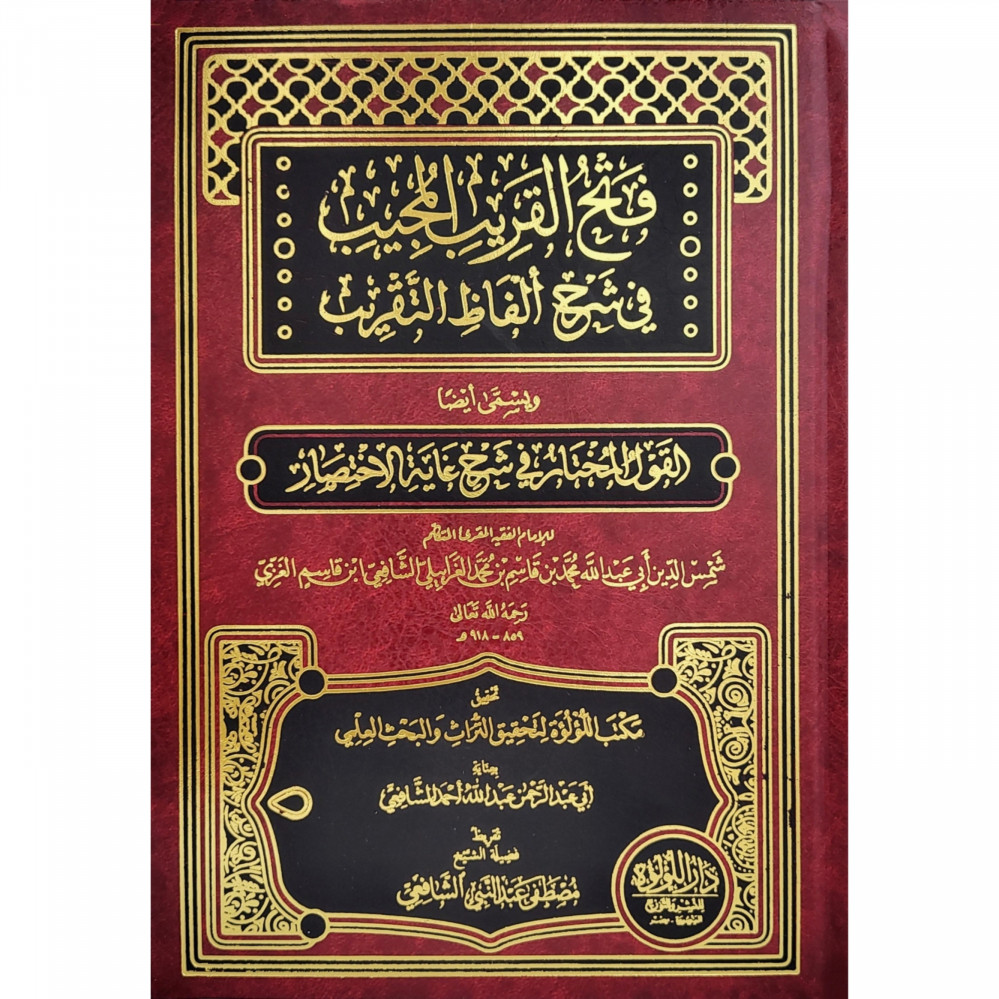 فَتْحُ القَرِيبِ المُجِيبِ
في شَرْحِ ألفَاظِ التَّقْرِيبِ
ويسمّى أيضًا
القَوْلُ المُخْتَارُ في شَرْحِ غَايَةِ الاخْتِصَارِ
للإمام الفقيه المقرئ المتكلم
شَمْسِ الدِّينِ أَبِي عَبْدِ اللَّه مُحَمَّد بْنِ قَاسِمِ بْنِ مُحَمَّد الغَرَابِيلِيّ الشَّافِعِيِّ ابْنِ قَاسِمٍ الغَزِّيّ
رَحِمَهُ اللَّه تَعَالَى
٨٥٩ - ٩١٨ هـ
تحقيق
مَكْتَب اللُّؤْلُؤَة لتَحْقِيق التُّرَاثِ وَالبَحْثِ العِلْمِي
بعناية
أبي عَبْد الرَّحْمَن عَبْد اللَّه أَحْمَد الشَّافِعِيّ
تقريظ
فضيلة الشيخ
مُصْطَفَى عَبْد النَّبِي الشَّافِعِيّ
دَارُ اللُّؤْلُؤَة
للنشر والتوزيع